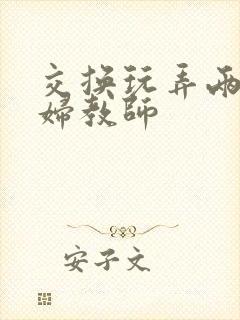 交换玩弄两
婦教師
安子文